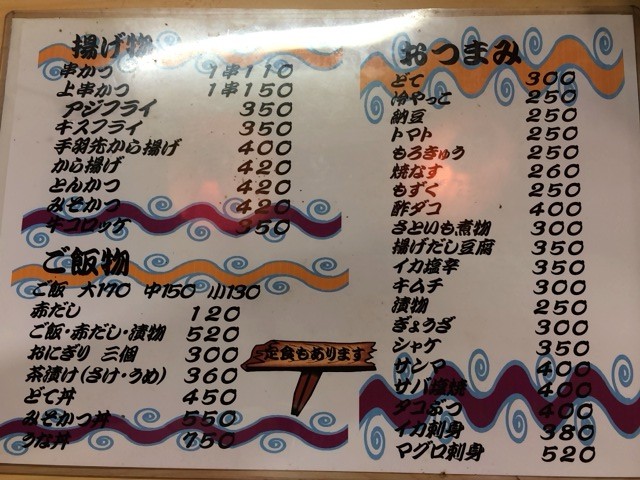 揚げ物
串かつ 1串110
上串かつ 1串150
アジフライ 350
キスフライ 350
手羽先から揚げ 400
から揚げ 420
とんかつ 420
みそかつ 420
牛コロッケ 350
ご飯物
ご飯 大170 中150 小130
赤だし 120
ご飯・赤だし・漬物 520
おにぎり 三個 300
茶漬け(さけ・うめ) 360
どて丼 450
みそかつ丼 550
うな丼 750
定食もあります
おつまみ
どて 300
冷やっこ 250
納豆 250
トマト 250
もろきゅう 250
焼なす 260
もずく 250
酢ダコ 400
さといも煮物 300
揚げだし豆腐 350
イカ塩辛 350
キムチ 300
漬物 250
ぎょうざ 300
シャケ 350
サンマ 400
サバ塩焼 400
タコぶつ 400
イカ刺身 380
マグロ刺身 520